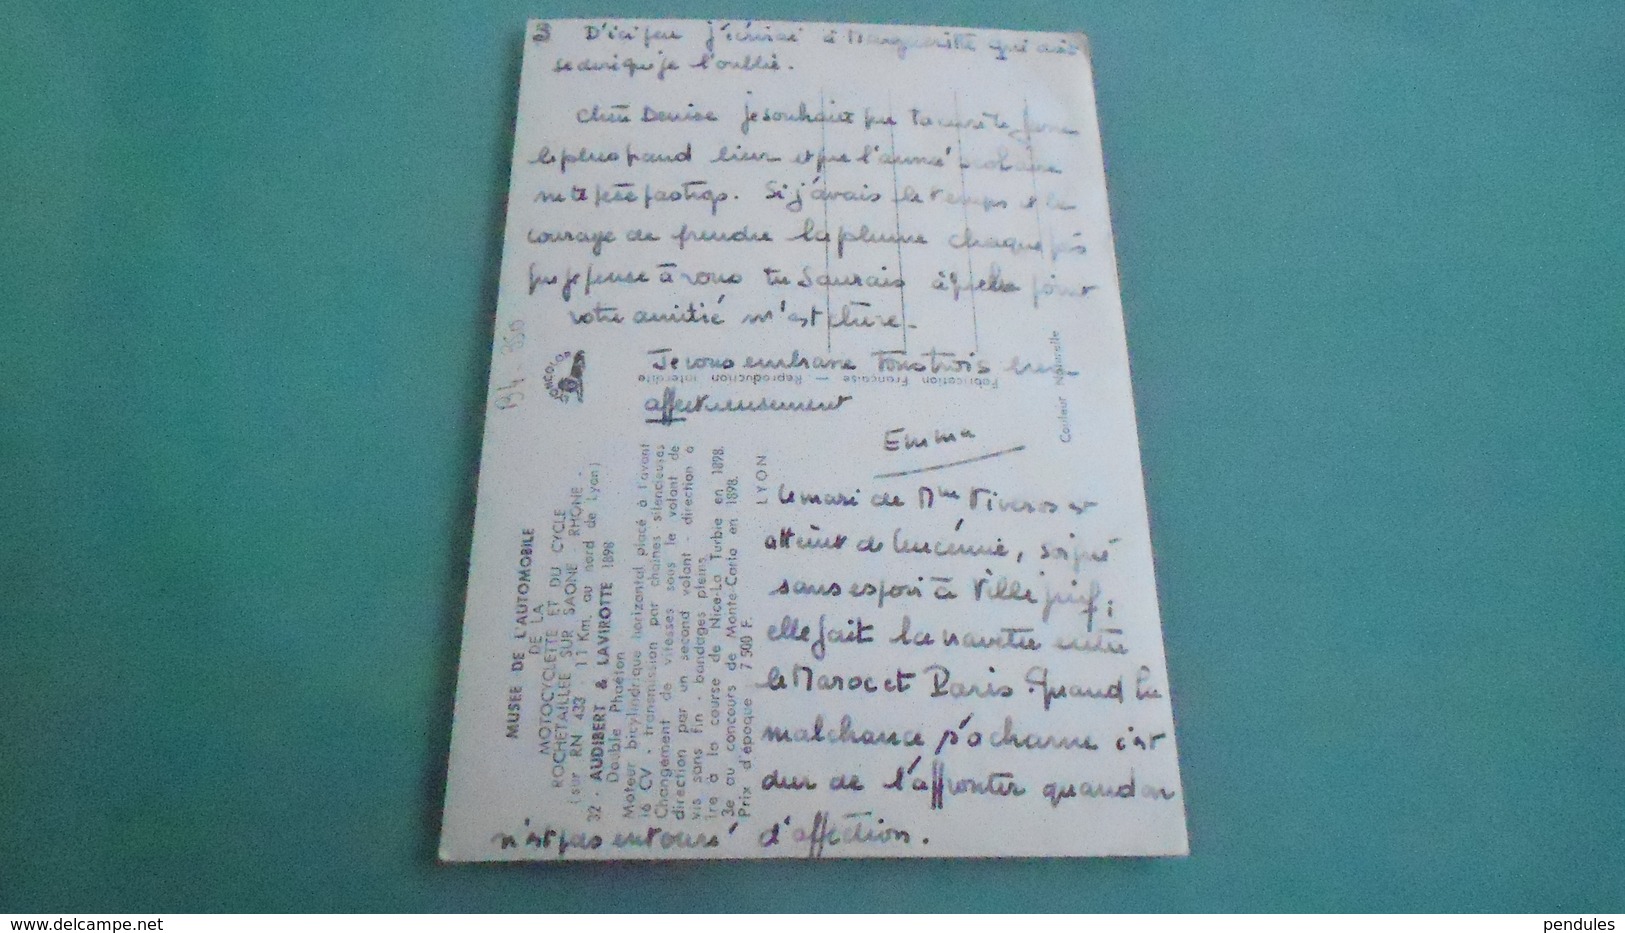 3 D'ici peu j'écrirai à Marguerite qui doit
se dire que je l'oublie.
Chère Denise je souhaite que ta cure te fasse
le plus grand bien et que l'année scolaire
ne te fatigue pas trop. Si j'avais le temps et le
courage de prendre la plume chaque fois
que je pense à vous tu saurais à quel point
votre amitié m'est chère.
Je vous embrasse tous trois bien
affectueusement
Emma
le mari de Mme Viveros est
atteint de leucémie, soigné
sans espoir à Villejuif;
elle fait la navette entre
le Maroc et Paris. Quand la
malchance s'acharne c'est
dur de l'affronter quand on
n'est pas entouré d'affection.
MUSEE DE L'AUTOMOBILE
DE LA
MOTOCYCLETTE ET DU CYCLE
ROCHETAILLEE SUR SAONE - RHONE -
(sur RN 433 - 11 Km. au nord de Lyon)
32 - AUDIBERT & LAVIROTTE 1898
Double Phaéton
Moteur bicylindrique horizontal placé à l'avant
16 CV - transmission par chaines silencieuses
Changement de vitesses sous le volant de
direction par un second volant - direction à
vis sans fin - bandages pleins.
1re à la course de Nice-La Turbie en 1898.
3e au concours de Monte-Carlo en 1898.
Prix d'époque : 7 500 F.
LYON
Fabrication Française — Reproduction interdite
Couleur Naturelle
COMBICOLOR
pendules
www.delcampe.net